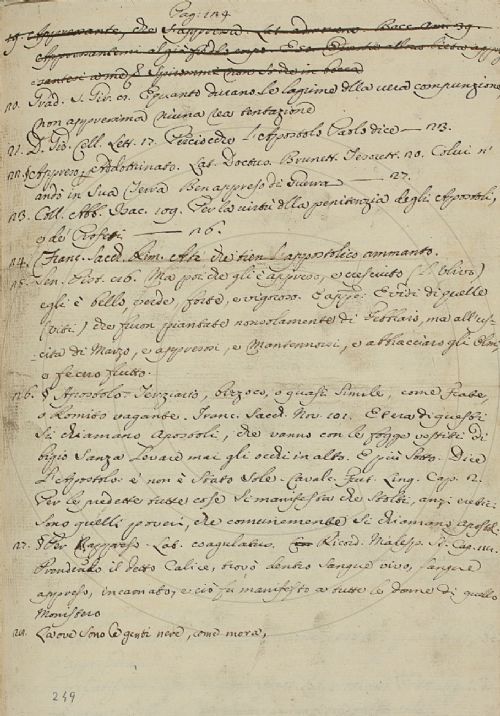 Pag: 124
19. Apprensante, che
20. Trad. S. Gir. 01. E quanto durano le lagrime della vera compunzione
non appressima niuna rea tentazione
21. D. Gio. Cell. Lett. 17. Perciocchè l'Apostolo Paolo dice — 23.
22. § Appreso, Addottrinato. Lat. Doctus. Brunett. Tesorett. 20. Colui n'
andò in sua Terra Ben appreso di Guerra — 27.
23. Coll. Abb. Isac. 109. Per la virtù della penitenzia degli Apostoli,
e de' Profeti — 26.
24. (Franc. Sacch. Rim. che tien l'appostolico ammanto.
25. Sen. Pist. 86. Ma poi che gli è appreso, e cresciuto (l'Ulivo)
egli è bello, verde, forte, e vigoroso. E appr. E vidi di quelle
(viti) che furon piantate nonsolamente di Febbraio, ma all'us-
cita di Marzo, e appresersi, e mantennorsi, e abbracciaro gli Olmi
e fecero frutto.
26. § Apostolo. Terziario, bizzoco, o quasi simile, come frate,
o Romito vagante. Franc. Sacch. Nov. 101. Et era di questi
si chiamano Apostoli, che vanno con le fogge vestiti di
bigio sanza levare mai gli occhi in alto. E più sotto. Dice
l'Apostolo: e non è stato sole. Cavalc. Frut. Ling. Cap. 2.
Per le predette tutte cose si manifesta che stolti, anzi eretici
sono quelli poveri, che comunemente si chiamano Apostoli
27. § Per Rappreso. Lat. coagulatus. Ricord. Malesp. St. Cap. 111.
Prendendo il detto Calice, trovò dentro sangue vivo, sangue
appreso, incarnato, e ciò fu manifesto a tutte le donne di quello
Monistero
28. Laove sono le genti nere, come mora,
249